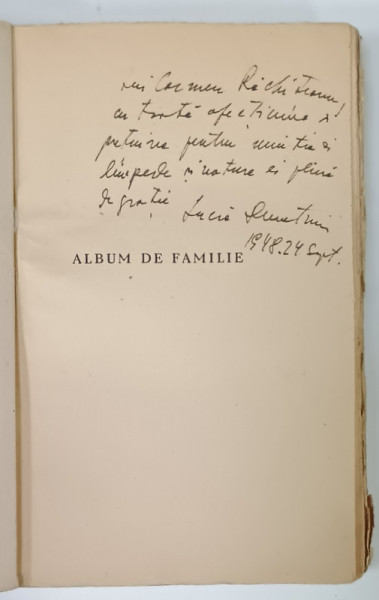 lui Carmen Răchițeanu
cu toată afecțiunea și
prețuirea pentru mintea ei
limpede și natura ei plină
de grație Lucia Demetrius
1948.24 Sept.
ALBUM DE FAMILIE